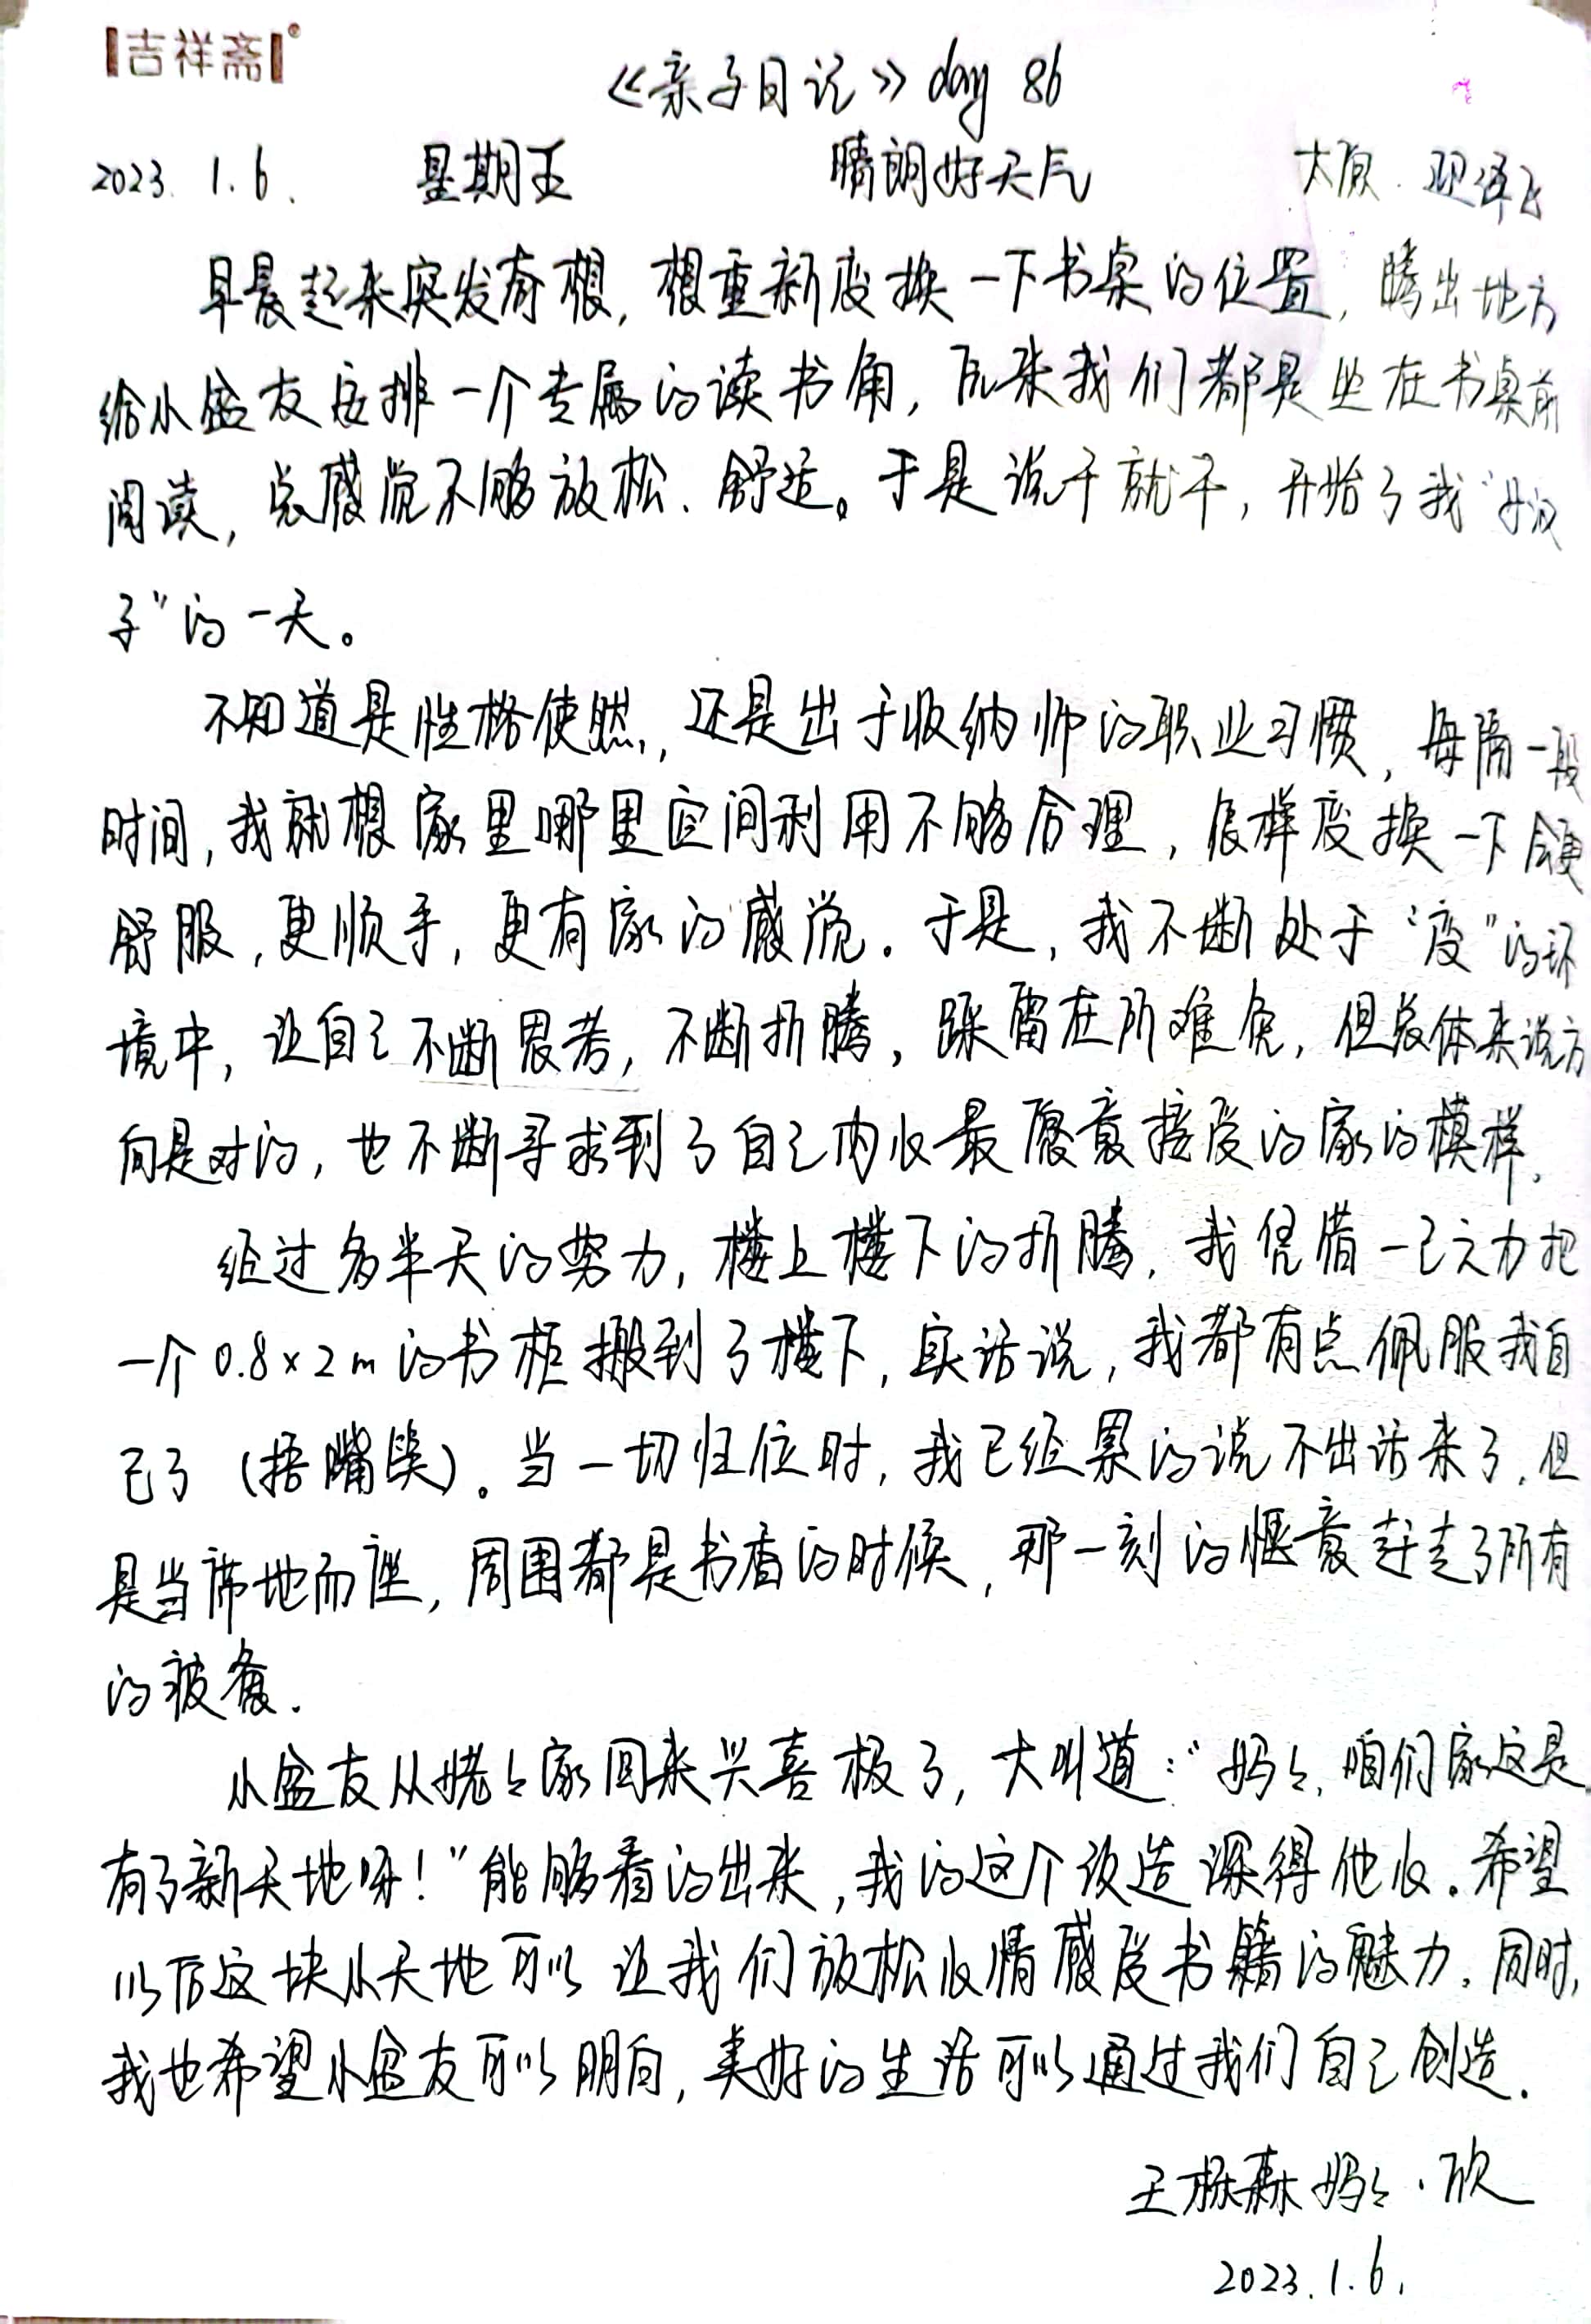 吉祥斋®
《亲子日记》day 86
2023. 1.6. 星期五 晴朗好天气 太原
早晨起来突发奇想,想重新变换一下书桌的位置,腾出地方
给小盆友安排一个专属的读书角,原来我们都是坐在书桌前
阅读,总感觉不够放松、舒适。于是说干就干,开始了我“女汉
子”的一天。
不知道是性格使然,还是出于收纳师的职业习惯,每隔一段
时间,我就想家里哪里空间利用不够合理,怎样变换一下会更
舒服,更顺手,更有家的感觉。于是,我不断处于“变”的环
境中,让自己不断思考,不断折腾,踩雷在所难免,但总体来说方
向是对的,也不断寻求到了自己内心最愿意接受的家的模样。
经过多半天的努力,楼上楼下的折腾,我凭借一己之力把
一个0.8×2m的书柜搬到了楼下,实话说,我都有点佩服我自
己了(捂嘴笑)。当一切归位时,我已经累的说不出话来了,但
是当席地而坐,周围都是书香的时候,那一刻的惬意赶走了所有
的疲惫.
小盆友从姥々家回来兴喜极了,大叫道:“妈々,咱们家这是
有了新天地呀!”能够看的出来,我的这个改造深得他心。希望
以后这块小天地可以让我们放松心情感受书籍的魅力。同时,
我也希望小盆友可以明白,美好的生活可以通过我们自己创造.
王栎森妈々·欣
2023.1.6.